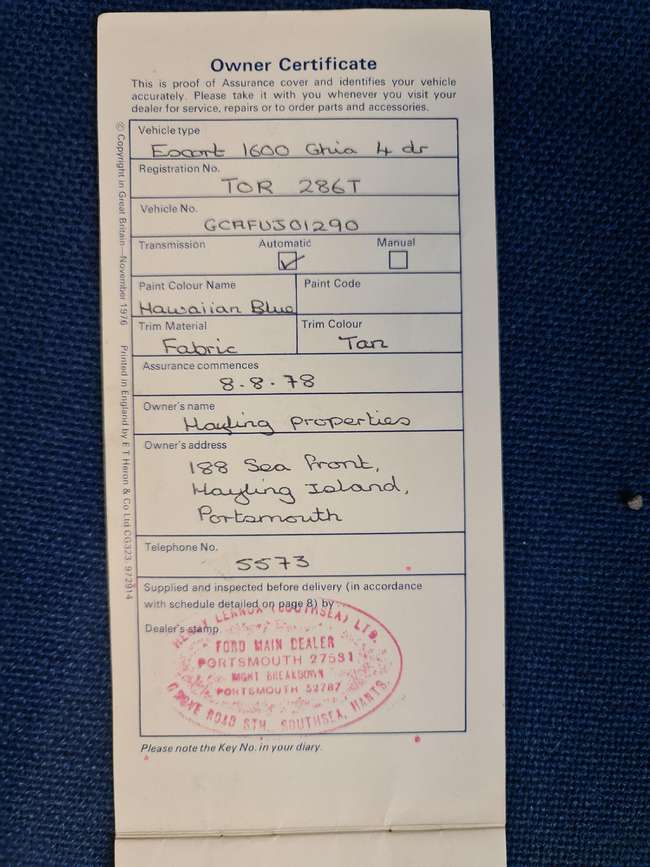 Owner Certificate
This is proof of Assurance cover and identifies your vehicle
accurately. Please take it with you whenever you visit your
dealer for service, repairs or to order parts and accessories.
Vehicle type
Escort 1600 Ghia 4 dr
Registration No.
TOR 286T
Vehicle No.
GCAFUJ01290
Transmission Automatic Manual
Paint Colour Name Paint Code
Hawaiian Blue
Trim Material Trim Colour
Fabric Tan
Assurance commences
8-8-78
Owner's name
Hayling properties
Owner's address
188 Sea front,
Hayling Island,
Portsmouth
Telephone No.
5573
Supplied and inspected before delivery (in accordance
with schedule detailed on page 8) by
Dealer's stamp
LENNOX (SOUTHSEA) LTD.
FORD MAIN DEALER
PORTSMOUTH 27531
MGHT BREAKDOWN
PORTSMOUTH 52787
ROAD STH, SOUTHSEA, HANTS.
Please note the Key No. in your diary.
© Copyright in Great Britain—November 1976 Printed in England by E T Heron & Co Ltd CG323 972914